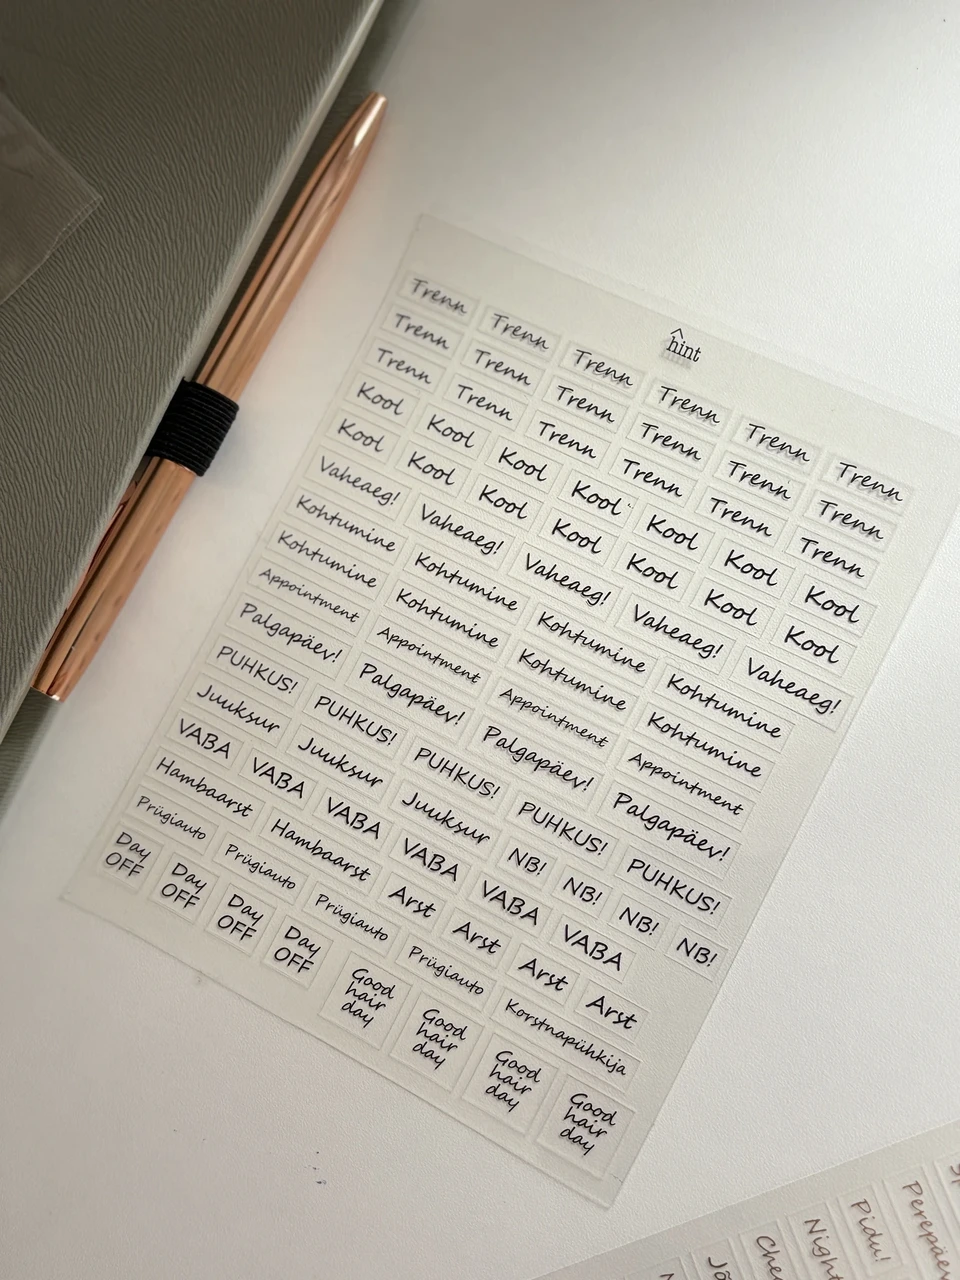 hint
Trenn Trenn Trenn Trenn Trenn Trenn
Trenn Trenn Trenn Trenn Trenn Trenn
Trenn Trenn Trenn Trenn Trenn Trenn
Kool Kool Kool Kool Kool Kool Kool
Kool Kool Kool Kool Kool Kool Kool
Vaheaeg! Vaheaeg! Vaheaeg! Vaheaeg! Vaheaeg!
Kohtumine Kohtumine Kohtumine Kohtumine
Kohtumine Kohtumine Kohtumine Kohtumine
Appointment Appointment Appointment Appointment
Palgapäev! Palgapäev! Palgapäev! Palgapäev!
PUHKUS! PUHKUS! PUHKUS! PUHKUS! PUHKUS!
Juuksur Juuksur Juuksur NB! NB! NB! NB!
VABA VABA VABA VABA VABA VABA
Hambaarst Hambaarst Arst Arst Arst Arst
Prügiauto Prügiauto Prügiauto Prügiauto Korstnapühkija
Day
OFF
Day
OFF
Day
OFF
Day
OFF
Good
hair
day
Good
hair
day
Good
hair
day
Good
hair
day
Pidu!